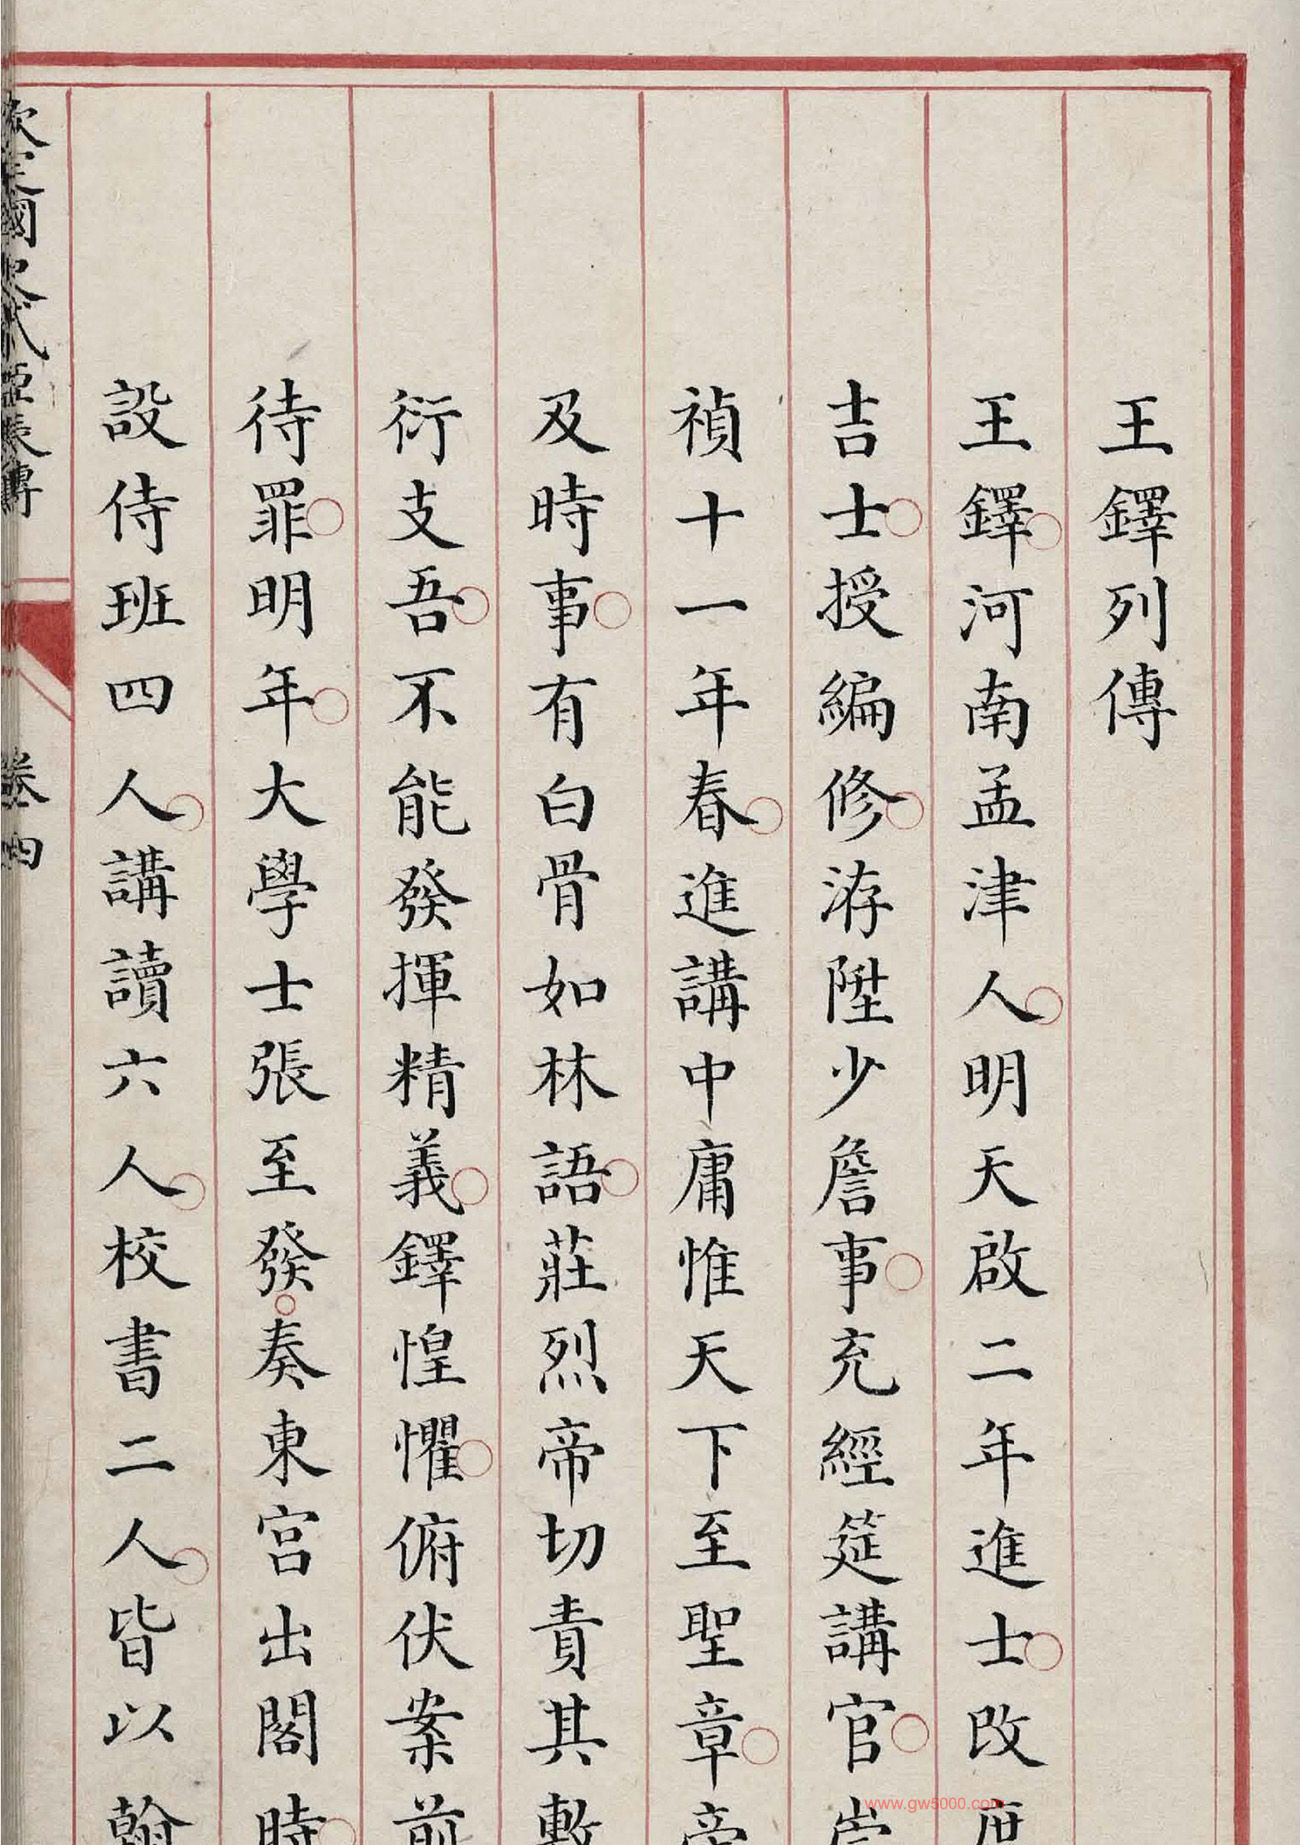 王鐸列傳
王鐸河南孟津人明天啟二年進士改庶
吉士授編修洊陞少詹事充經筵講官崇
禎十一年春進講中庸惟天下至聖章帝
及時事有白骨如林語莊烈帝切責其敷
衍支吾不能發揮精義鐸惶懼俯伏案前
待罪明年大學士張至發奏東宮出閣時
設侍班四人講讀六人校書二人皆以翰
欽定國史貳臣表傳
卷四
www.gw5000.com